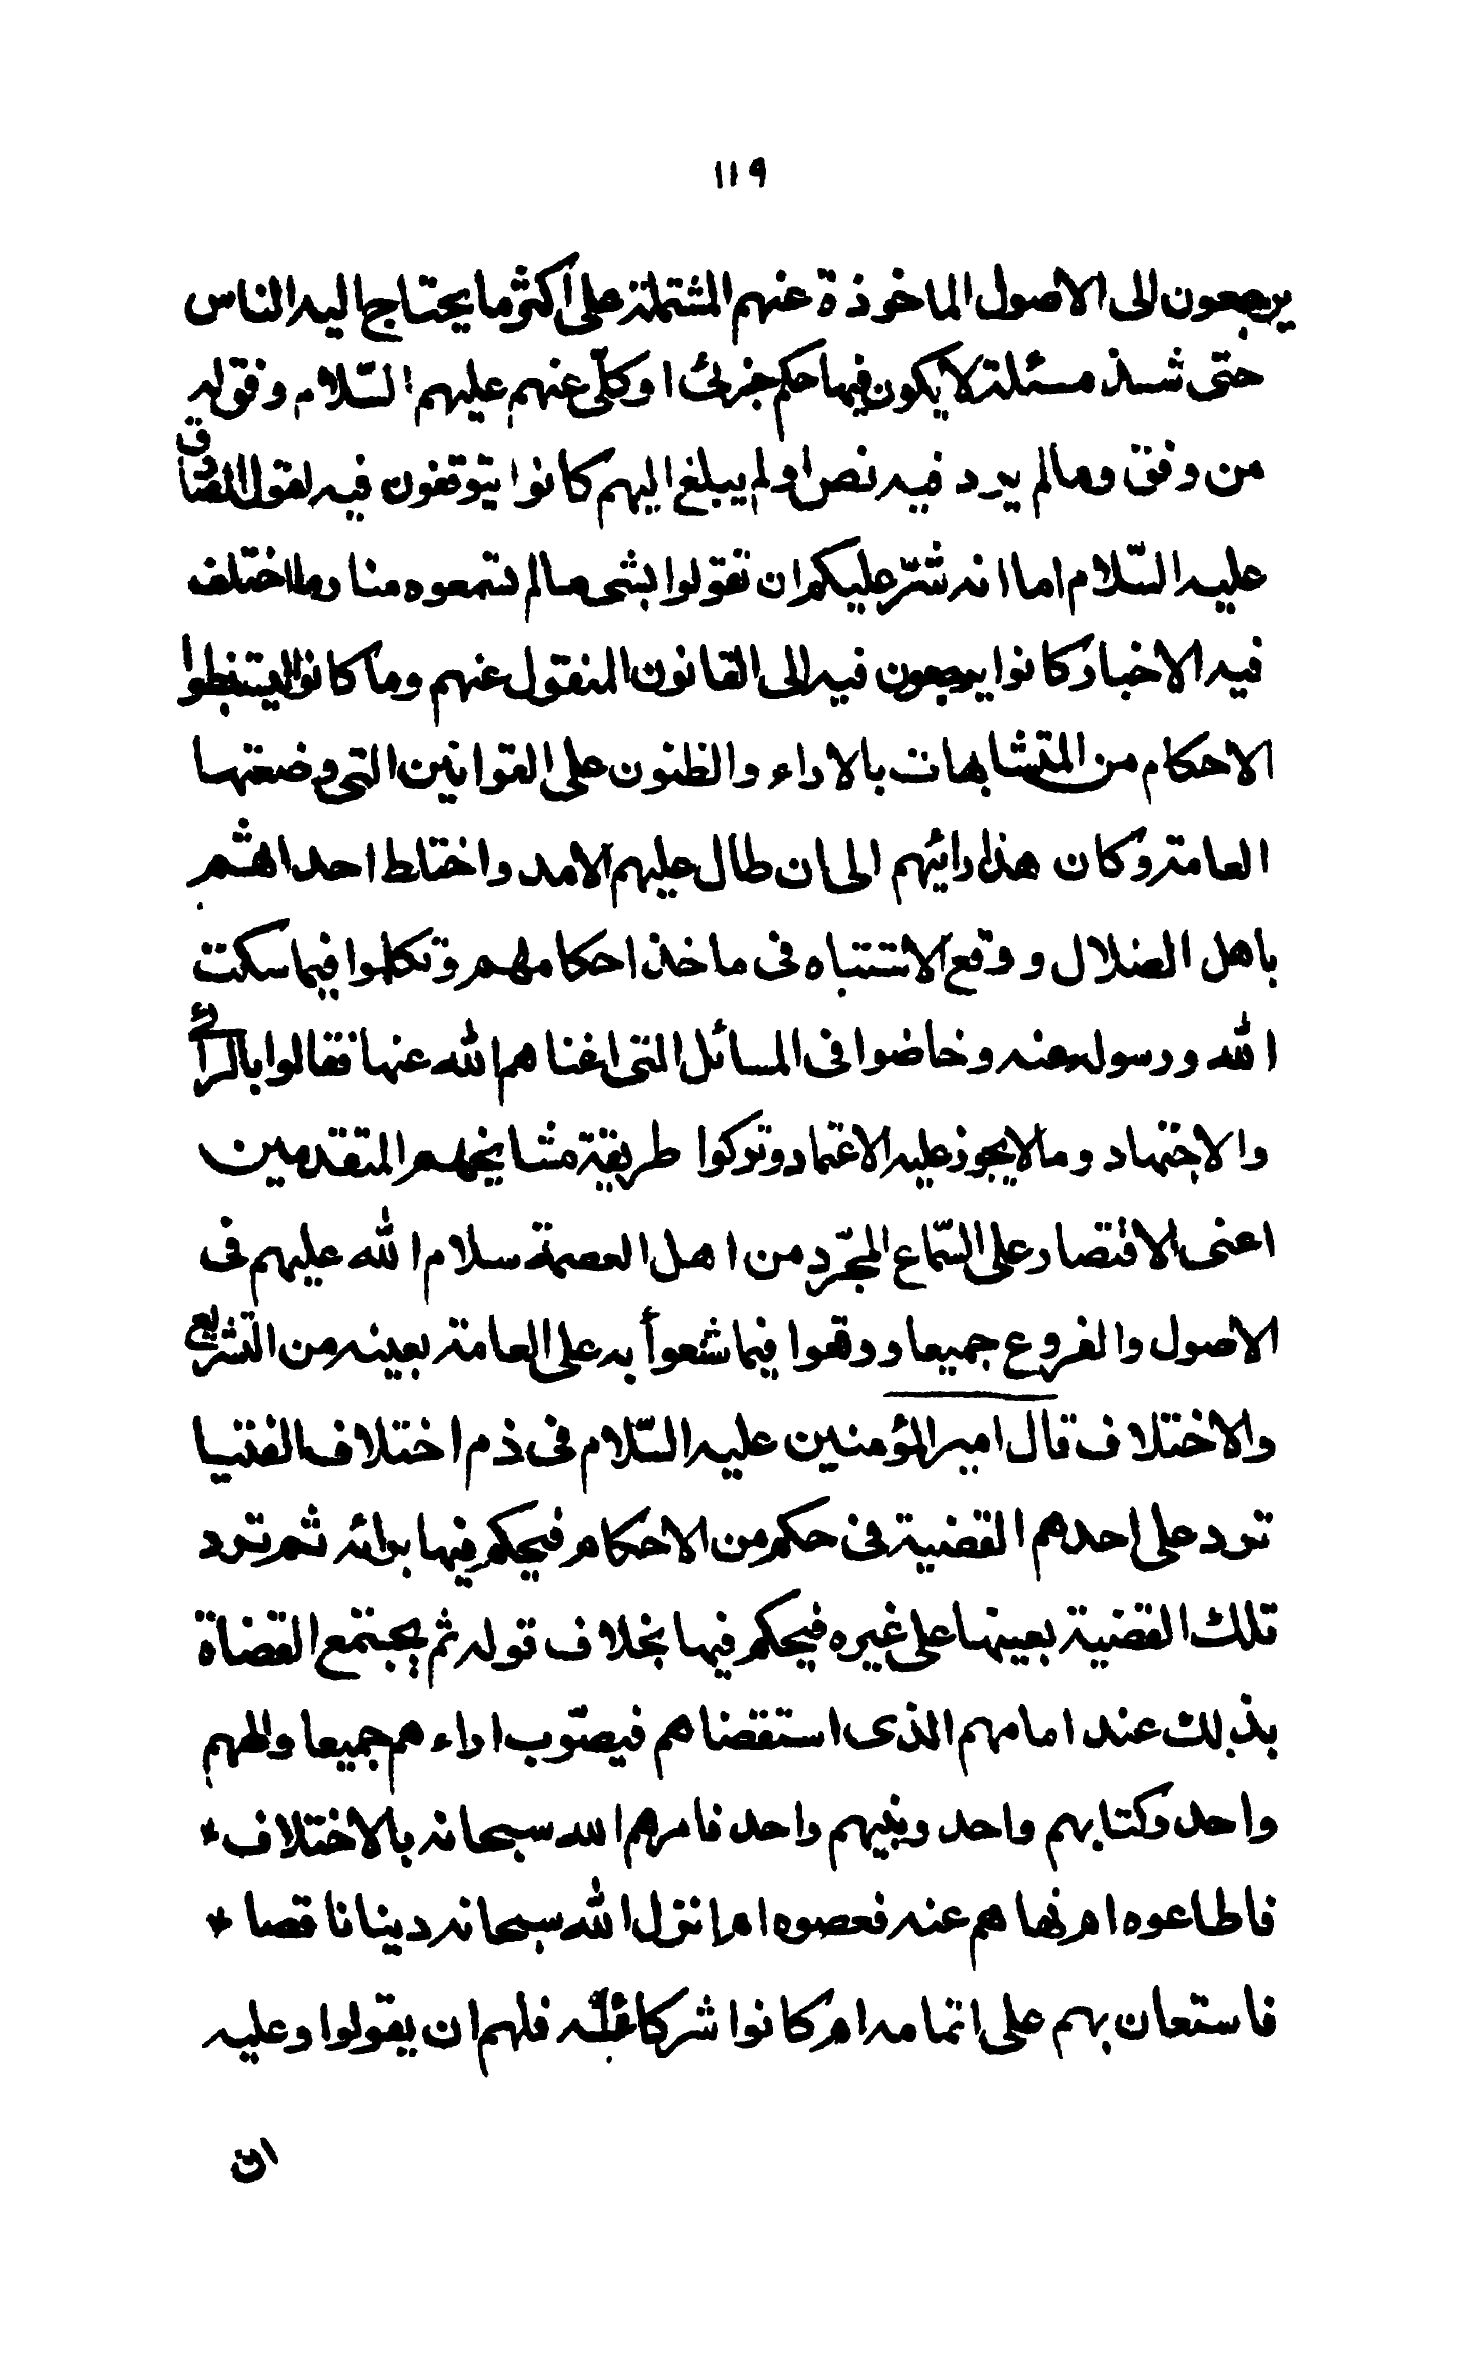 ١١٩
يرجعون الى الاصول الماخوذة عنهم المشتملة على اكثر ما يحتاج اليه الناس
حتى شذ مسئلة لا يكون فيها حكم جزئ او كلّى عنهم عليهم السّلام وفق له
من وفق وما لم يرد فيه نص او لم يبلغ اليهم كانوا يتوقفون فيه لقول الصّادق
عليه السّلام اما انه شرّ عليكم ان تقولوا بشى مالم تسمعوه منا وما اختلف
فيه الاخبار كانوا يرجعون فيه الى القانون المنقول عنهم وما كانوا ليستنبطوا
الاحكام من المتشابهات بالاراء والظنون على القوانين التى وضعتها
العامة وكان هذا رائهم الى ان طال عليهم الامد واختلط احداثهم
باهل الضلال ووقع الاشتباه فى ماخذ احكامهم وتكلموا فيما سكت
الله ورسوله عنه وخاضوا فى المسائل التى اغناهم الله عنها فقالوا بالرأى
والاجتهاد وما لا يجوز عليه الاعتماد وتركوا طريقة مشايخهم المتقدمين
اعنى الاقتصار على السّماع المجرّد من اهل العصمة سلام الله عليهم فى
الاصول والفروع جميعا ووقعوا فيما شنعوا به على العامة بعينه من التشريع
والاختلاف قال امير المؤمنين عليه السّلام فى ذم اختلاف الفتيا
ترد على احدهم القضية فى حكم من الاحكام فيحكم فيها برائه ثم ترد
تلك القضية بعينها على غيره فيحكم فيها بخلاف قوله ثم يجتمع القضاة
بذلك عند امامهم الذى استقضاهم فيصوّب اراءهم جميعا والههم
واحد وكتابهم واحد ونبيهم واحد فامرهم الله سبحانه بالاختلاف *
فاطاعوه ام نهاهم عنه فعصوه ام انزل الله سبحانه دينا ناقصا *
فاستعان بهم على اتمامه ام كانوا شركاء له فلهم ان يقولوا وعليه
ان